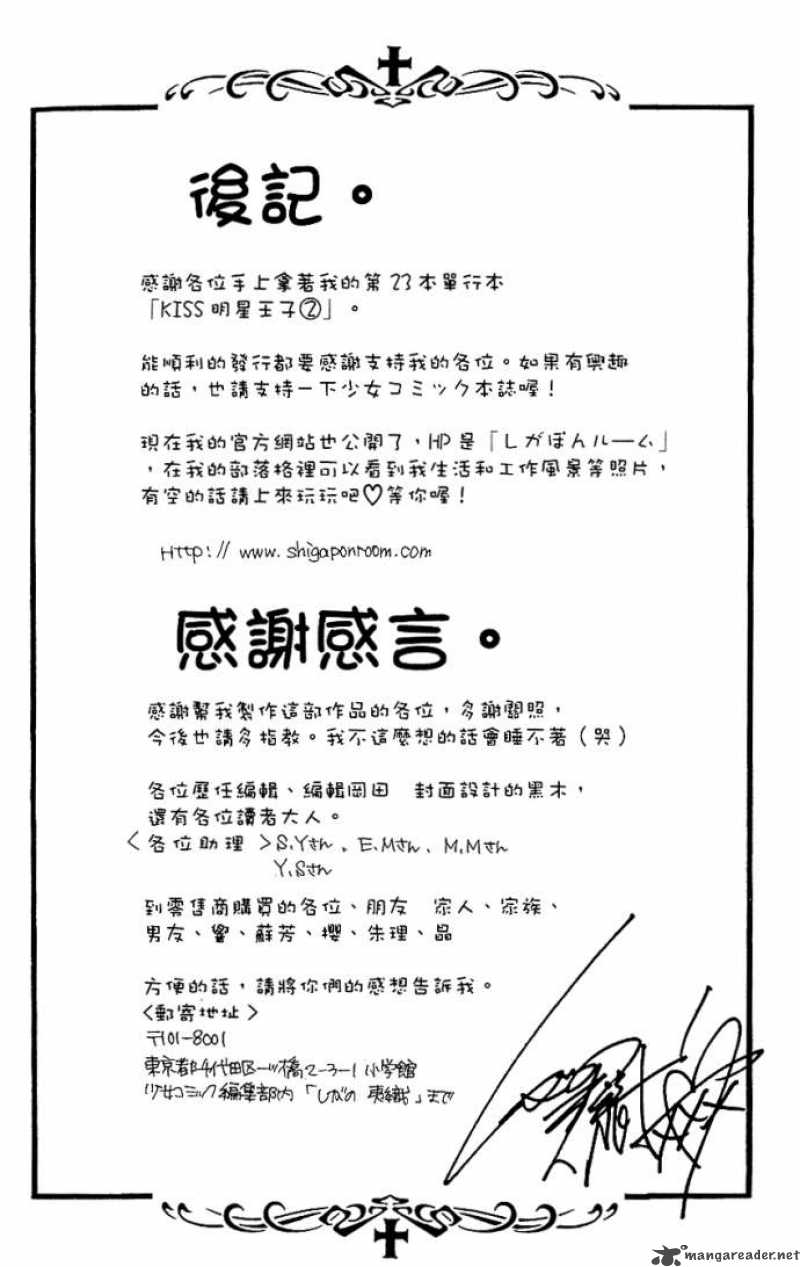 後記。
感謝各位手上拿著我的第23本單行本
「KISS明星王子②」。
能順利的發行都要感謝支持我的各位。如果有興趣
的話，也請支持一下少女コミック本誌喔！
現在我的官方網站也公開了，HP是「しがぽんルーム」
，在我的部落格裡可以看到我生活和工作風景等照片，
有空的話請上來玩玩吧♡等你喔！
Http://www.shigaponroom.com
感謝感言。
感謝幫我製作這部作品的各位，多謝關照，
今後也請多指教。我不這麼想的話會睡不著（哭）
各位歷任編輯、編輯岡田　封面設計的黑木，
還有各位讀者大人。
＜各位助理＞S.Yさん、E.Mさん、M.Mさん
Y.Sさん
到零售商購買的各位、朋友　家人、家族、
男友、響、蘇芳、櫻、朱理、晶
方便的話，請將你們的感想告訴我。
＜郵寄地址＞
〒101-8001
東京都千代田区一ツ橋2-3-1 小学館
少女コミック編集部内「しがの夷織」まで
mangareader.net